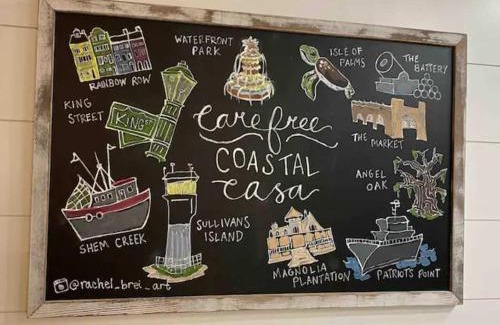 RAINBOW ROW
WATERFRONT
PARK
ISLE OF
PALMS
THE
BATTERY
KING
STREET
KING ST
carefree
COASTAL
casa
THE MARKET
ANGEL
OAK
SHEM CREEK
SULLIVANS
ISLAND
MAGNOLIA
PLANTATION
PATRIOTS POINT
@rachel_brei_art